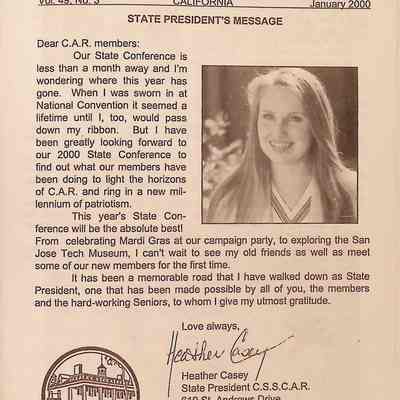 Vol. 49, No. 3 CALIFORNIA January 2000
STATE PRESIDENT'S MESSAGE
Dear C.A.R. members:
Our State Conference is
less than a month away and I'm
wondering where this year has
gone. When I was sworn in at
National Convention it seemed a
lifetime until I, too, would pass
down my ribbon. But I have
been greatly looking forward to
our 2000 State Conference to
find out what our members have
been doing to light the horizons
of C.A.R. and ring in a new mil-
lennium of patriotism.
This year's State Con-
ference will be the absolute best!
From celebrating Mardi Gras at our campaign party, to exploring the San
Jose Tech Museum, I can't wait to see my old friends as well as meet
some of our new members for the first time.
It has been a memorable road that I have walked down as State
President, one that has been made possible by all of you, the members
and the hard-working Seniors, to whom I give my utmost gratitude.
Love always,
Heather Casey
Heather Casey
State President C.S.S.C.A.R.
619 St. Andrews Drive